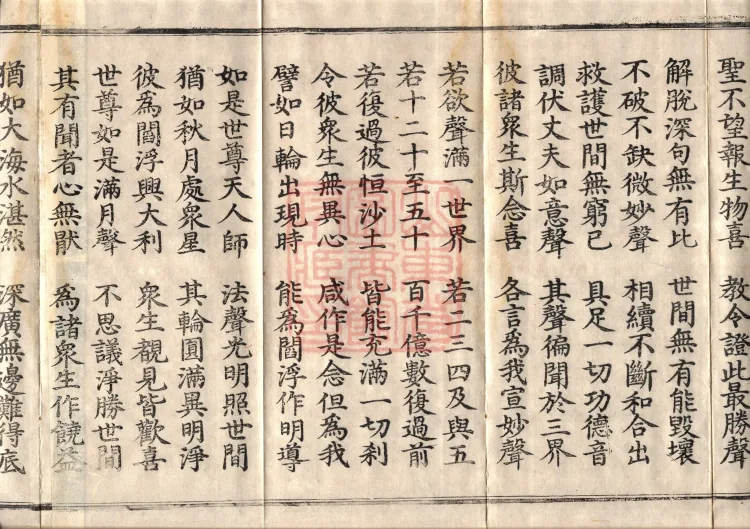 聖不望報生物喜　教令證此最勝聲
解脫深句無有比　世間無有能毀壞
不破不缺微妙聲　相續不斷和合出
救護世間無窮已　具足一切功德音
調伏丈夫如意聲　其聲徧聞於三界
彼諸眾生斯念喜　各言為我宣妙聲
若欲聲滿一世界　若二三四及與五
若十二十至五十　百千億數復過前
若復過彼恒沙土　皆能充滿一切刹
令彼眾生無異心　咸作是念但為我
譬如日輪出現時　能為閻浮作明導
如是世尊天人師　法聲光明照世間
猶如秋月處眾星　其輪圓滿異明淨
彼為閻浮興大利　眾生覩見皆歡喜
世尊如是滿月聲　不思議淨勝世間
其有聞者心無猒　為諸眾生作饒益
猶如大海水湛然　深廣無邊難得底